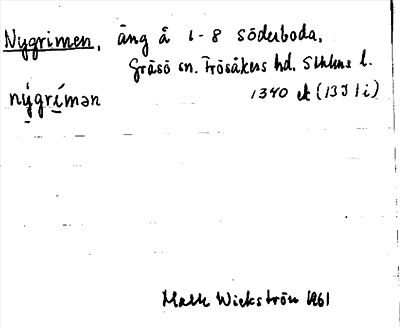 Nygrimen, äng å 1-8 Söderboda,
Gräsö sn. Frösåkers hd. Sthlms l.
nýgríman 1340 ek (13J 1i)
Wickström 1961